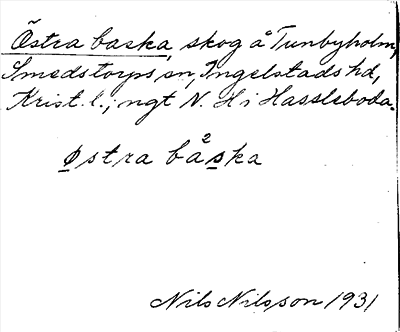 Östra baska, skog å Tunbyholm,
Smedstorps sn, Ingelstads hd,
Krist. l.; ngt N. H i Hassleboda.
östra bå²ska
Nils Nilsson 1931